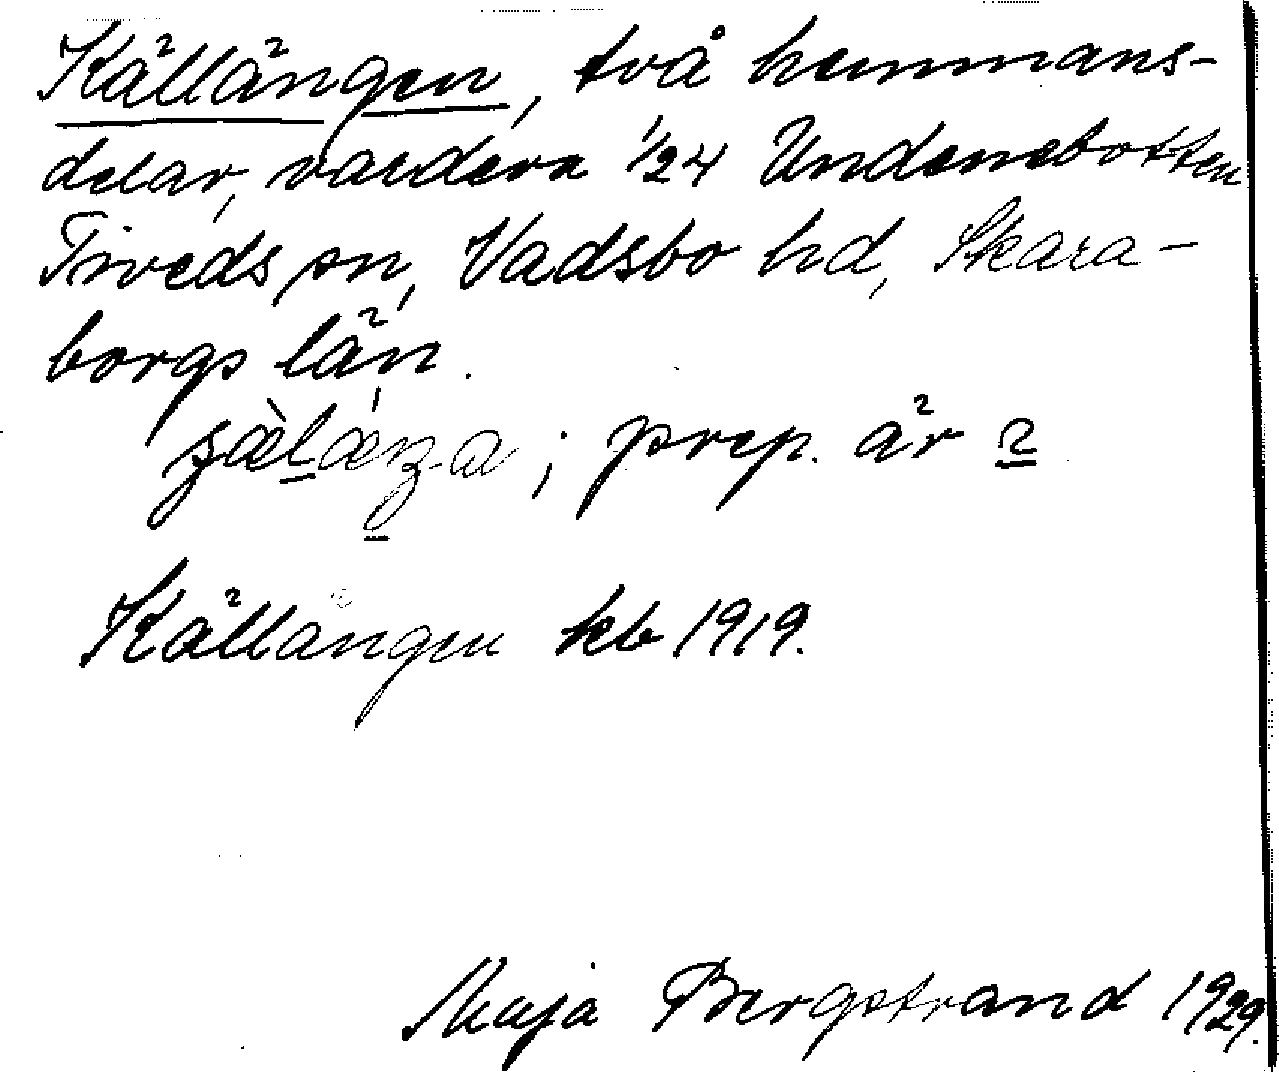 Källängen, två hemmans-
delar, vardera 1/24 Undenäbotten
Tiveds sn, Vadsbo hd, Skara-
borgs län.
; prep. är
Källängen keb 1919.
Maja Bergstrand 1929.